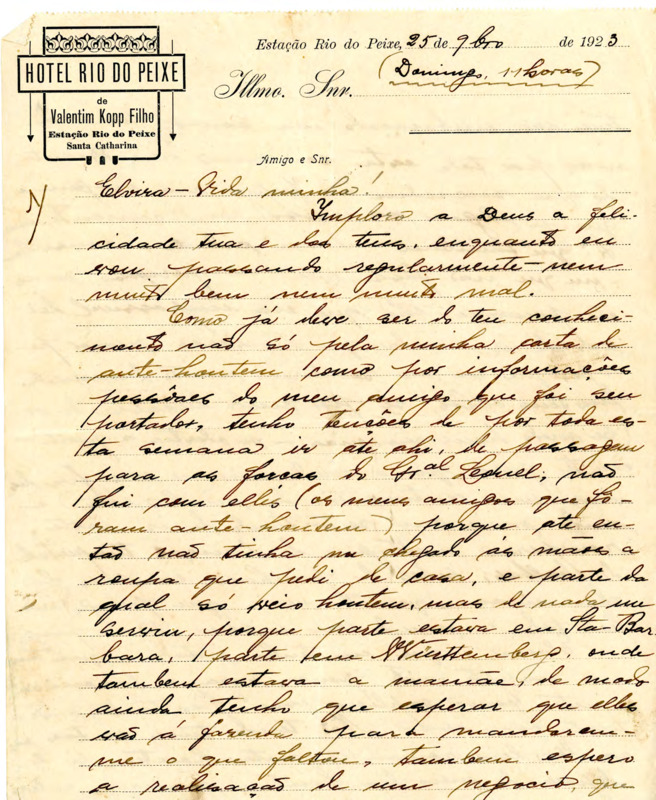 HOTEL RIO DO PEIXE
de
Valentim Kopp Filho
Estação Rio do Peixe
Santa Catharina
Estação Rio do Peixe, 25 de 9bro de 1923
(Domingo, 11 horas)
Illmo. Snr.
Amigo e Snr.
Elvira – Vida minha!
Imploro a Deus a feli-
cidade tua e dos teus, enquanto eu
vou passando regularmente – nem
muito bem nem muito mal.
Como já deve ser do teu conheci-
mento não só pela minha carta de
ante-hontem como por informações
pessôaes do meu amigo que foi seu
portador, tenho tenções de por toda es-
ta semana ir até ahi, de passagem
para as forças do Gral Leonel; não
fui com elles (os meus amigos que fô-
ram ante-hontem) porque até en-
tão não tinha me chegado ás mãos a
roupa que pedi de casa, e parte da
qual só veio hontem, mas de nada me
serviu, porque parte estava em Sta Bar-
bara, parte em Württemberg, onde
tambem estava a mamãe, de modo
ainda tenho que esperar que elles
vão á fazenda para mandarem-
me o que faltou, tambem espero
a realisação de um negocio, que